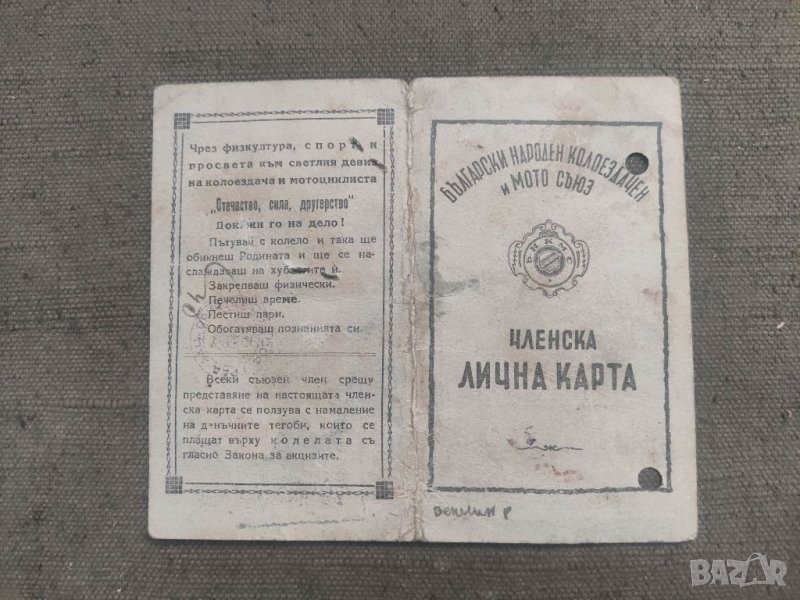 Чрез физкултура, спорт и
просвета към светлия девиз
на колоездача и мотоциклиста
„Отечество, сила, другарство"
Докажи го на дело!
Пътувай с колело и така ще
обикнеш Родината и ще се на-
слаждаваш на хубостите ѝ.
Закрепваш физически.
Печелиш време.
Пестиш пари.
Обогатяваш познанията си.
Всеки съюзен член срещу
представяне на настоящата член-
ска карта се ползува с намаление
на данъчните тегоби, които се
плащат върху колелата съ-
гласно Закона за акцизите.
БЪЛГАРСКИ НАРОДЕН КОЛОЕЗДАЧЕН
и МОТО СЪЮЗ
БНКМС
ЧЛЕНСКА
ЛИЧНА КАРТА
BAZAR